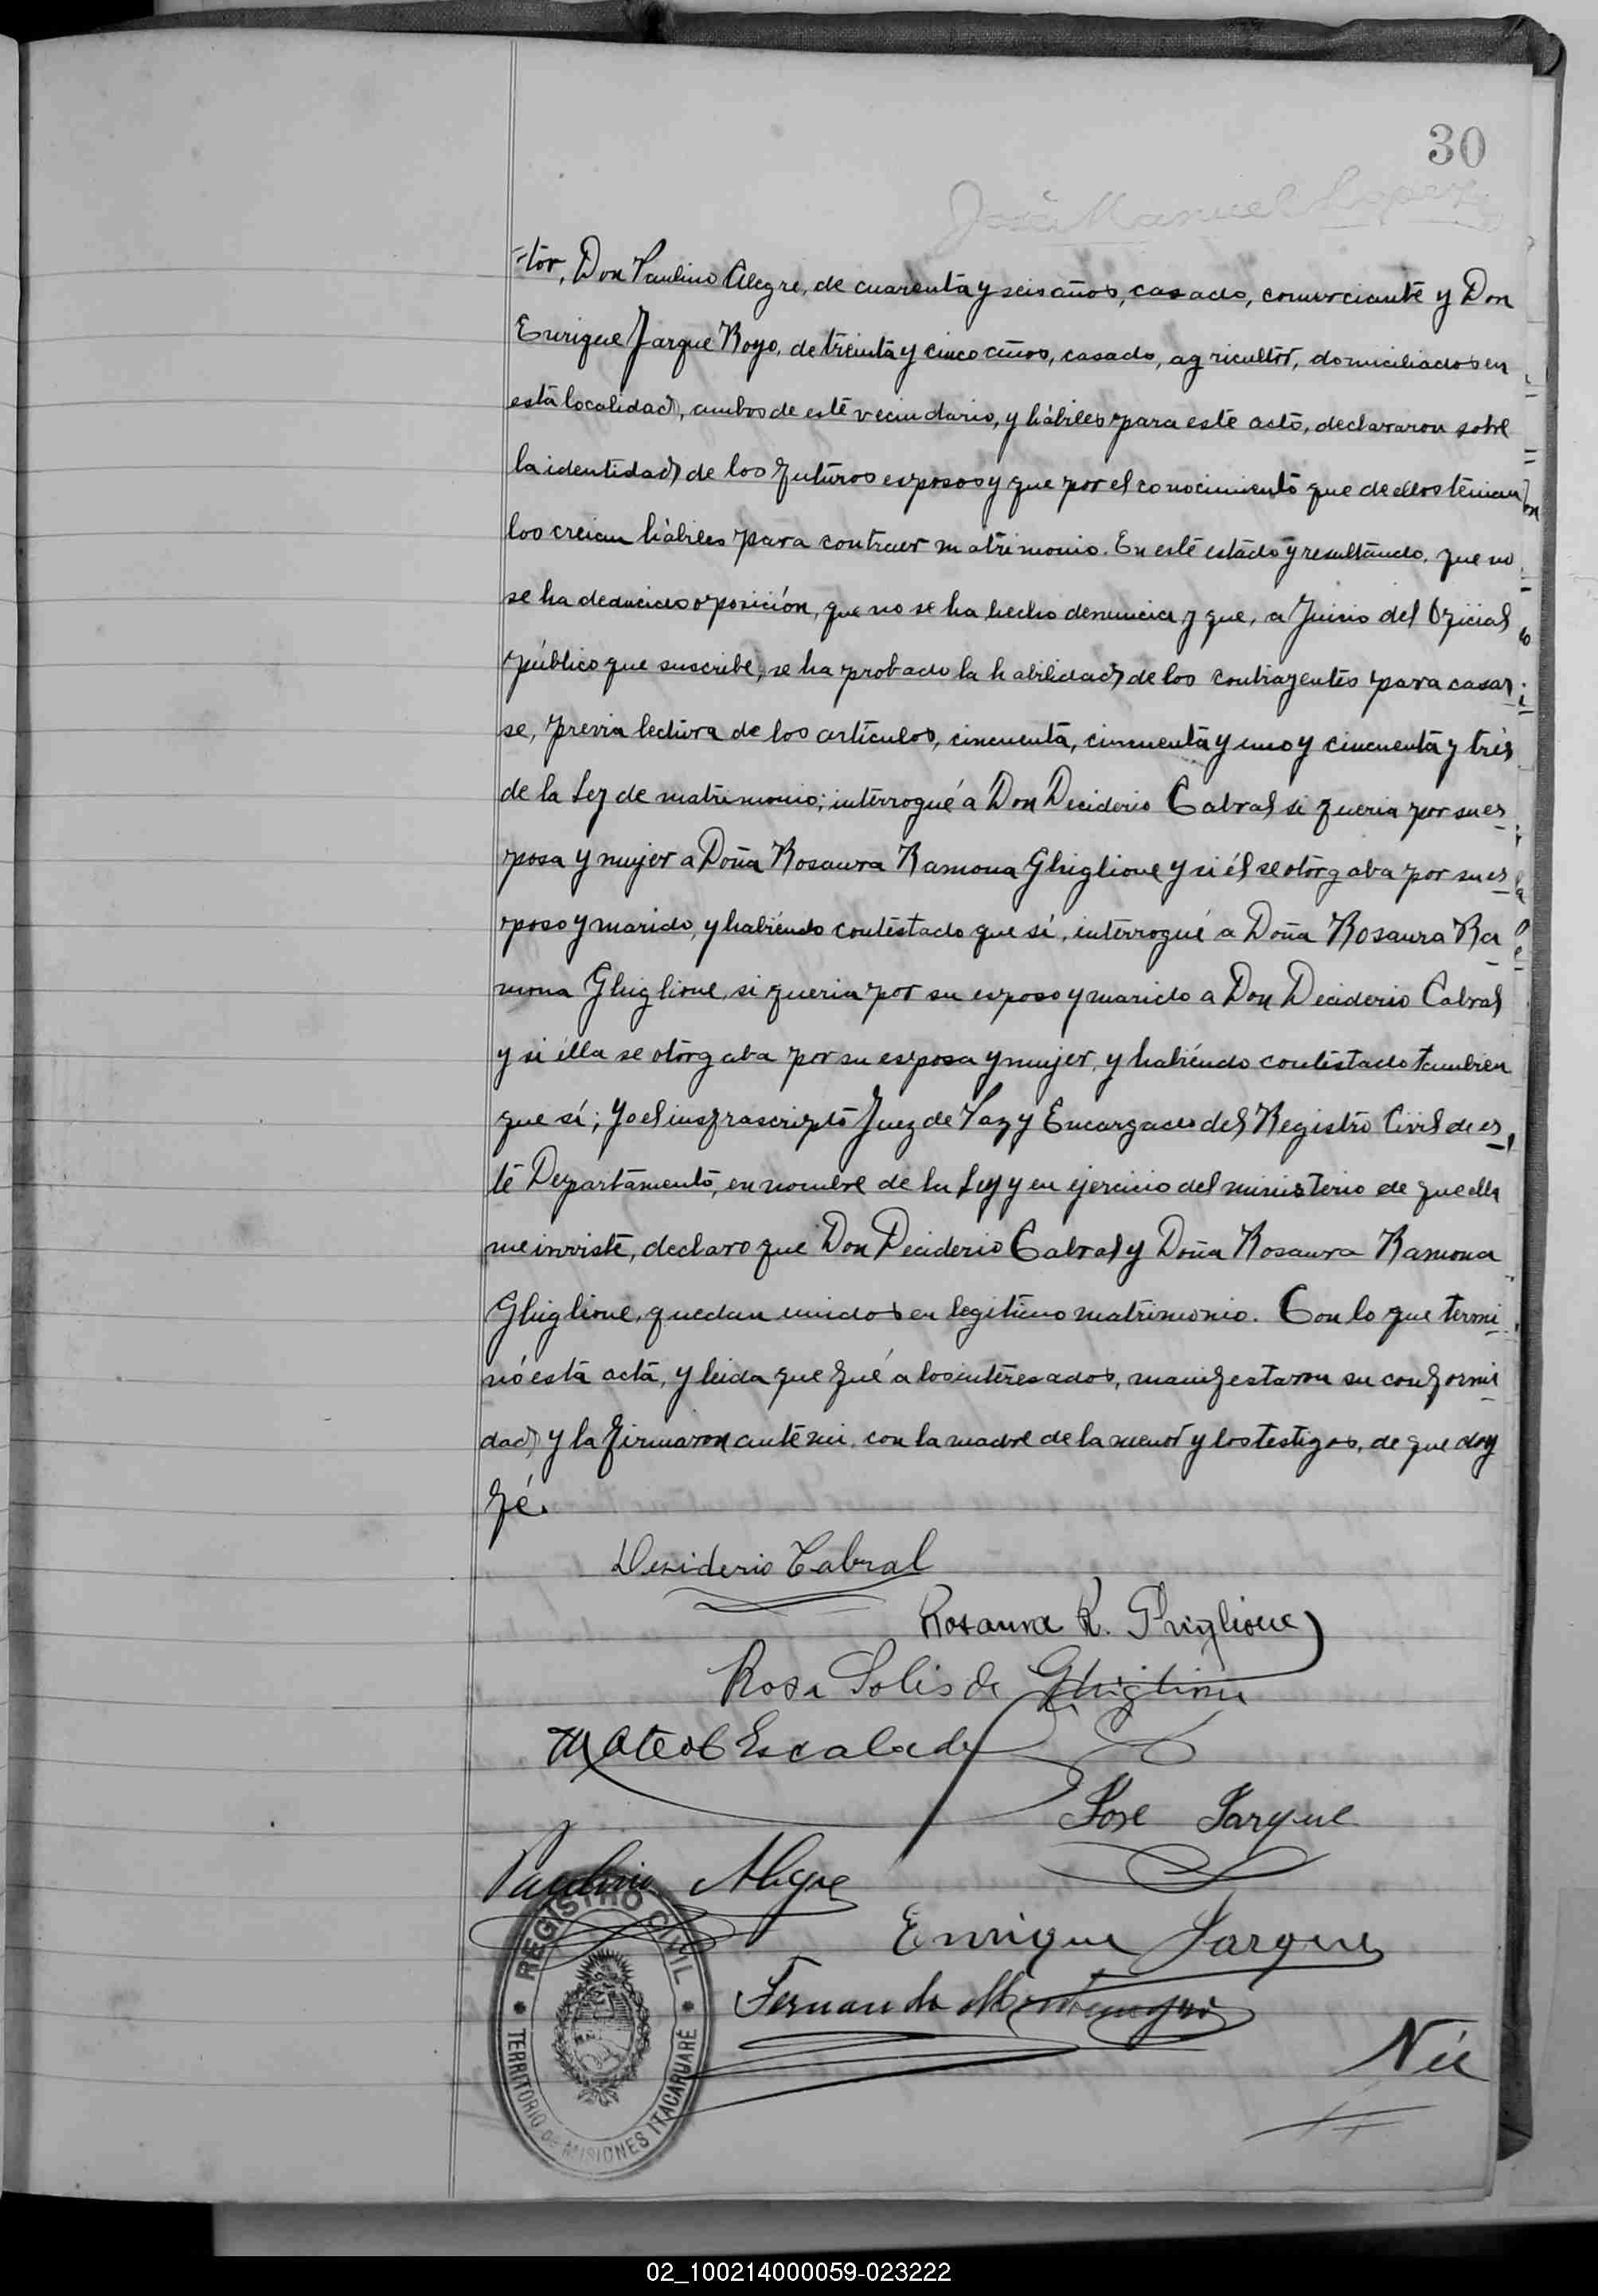 30
José Manuel Lopez
-tor, Don Paulino Alegre, de cuarenta y seis años, casado, comerciante y Don
Enrique Jarque Royo, de treinta y cinco años, casado, agricultor, domiciliados en
esta localidad, ambos de este vecindario, y hábiles para este acto, declararon sobre
la identidad de los futuros esposos y que por el conocimiento que de ellos tenian
los creian hábiles para contraer matrimonio. En este estado y resultando, que no
se ha deducido oposición, que no se ha hecho denuncia y que, a Juicio del Oficial
público que suscribe, se ha probado la habilidad de los contrayentes para casar
se, previa lectura de los artículos, cincuenta, cincuenta y uno y cincuenta y trés
de la Ley de matrimonio; interrogué a Don Deciderio Cabral si queria por su es
posa y mujer a Doña Rosaura Ramona Ghiglione y si él se otorgaba por su es
poso y marido, y habiéndo contestado que sí, interrogué a Doña Rosaura Ra
mona Ghiglione, si queria por su esposo y marido a Don Deciderio Cabral
y si élla se otorgaba por su esposa y mujer, y habiéndo contestado tambien
que sí; Yo el insfrascripto Juez de Paz y Encargado del Registro Civil de es
te Departamento, en nombre de la Ley y en ejercicio del ministerio de que ella
me inviste, declaro que Don Deciderio Cabral y Doña Rosaura Ramona
Ghiglione, quedan unidos en legitimo matrimonio. Con lo que termi
nó esta acta, y leida que fué a los interesados, manifestaron su conformi
dad y la firmaron ante mi, con la madre de la menor y los testigos, de que doy
fé.
Desiderio Cabral
Rosaura R. Ghiglione
Rosa Solis de Ghiglione
Mateo Escalada
José Jarque
Paulino Alegre
Enrique Jarque
Fernando Montenegro
REGISTRO CIVIL
TERRITORIO DE MISIONES ITACARUARÉ
02_100214000059-023222